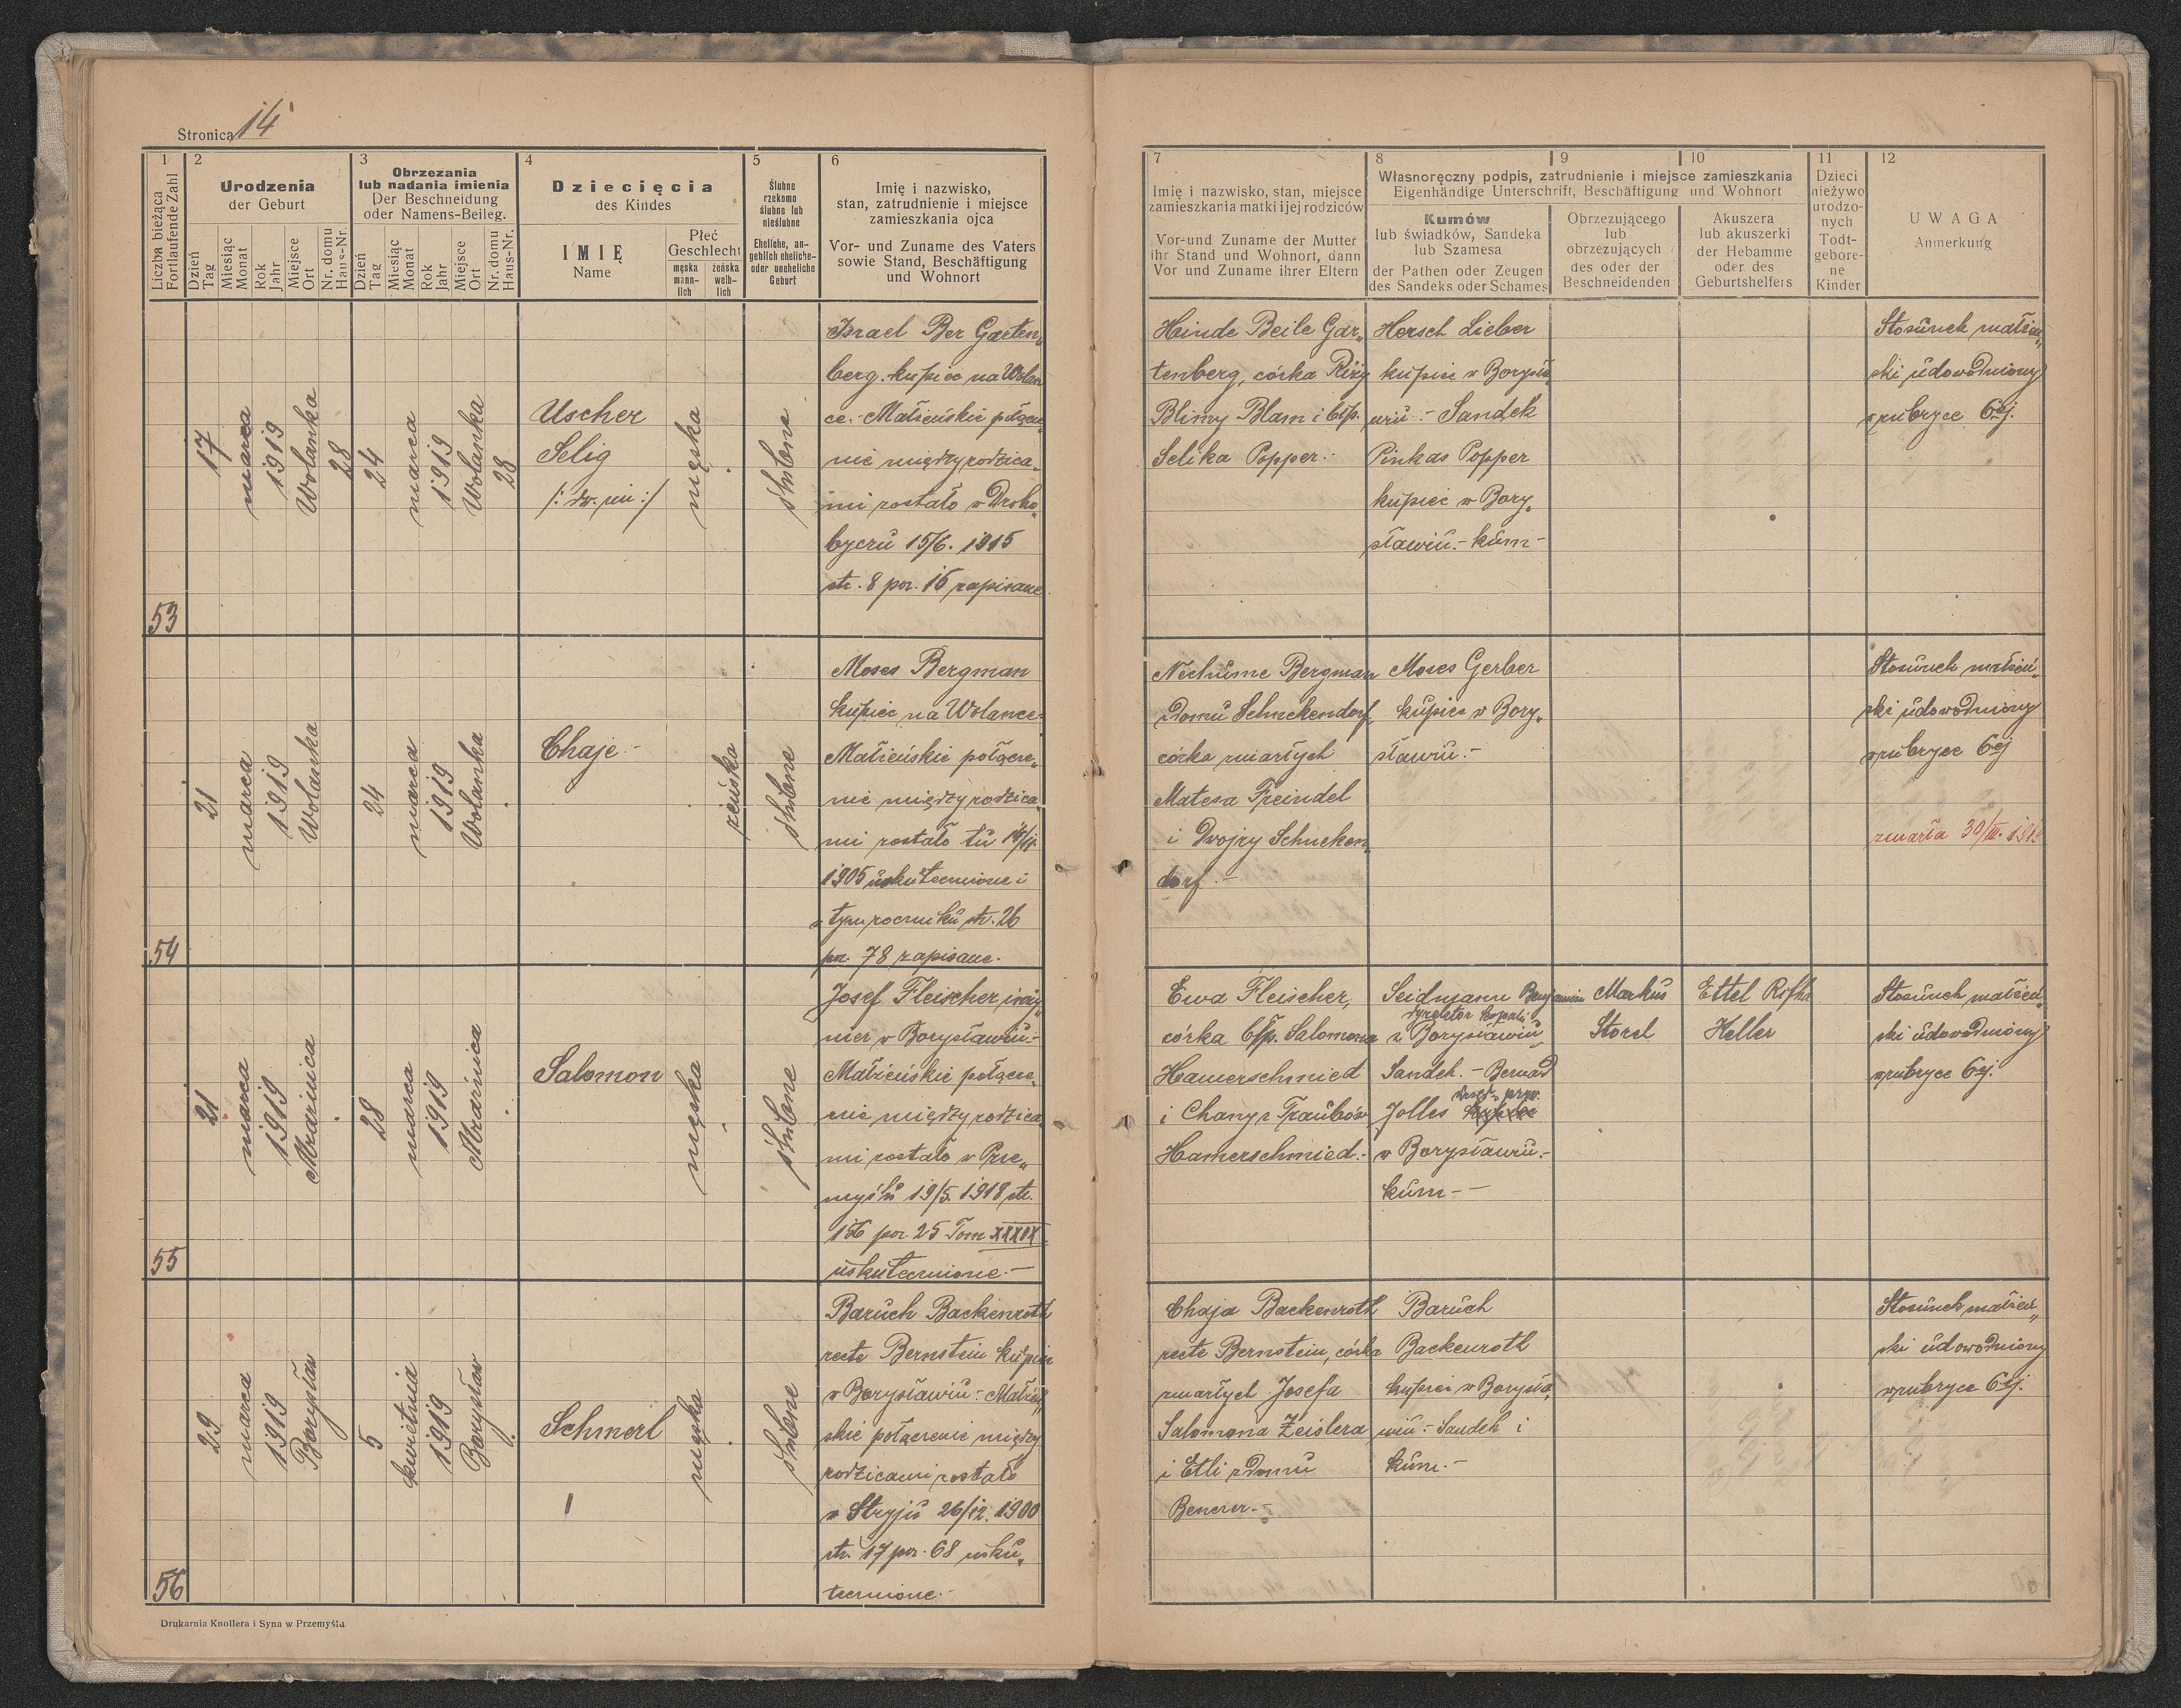 Stronica 14
1
Liczba bieżąca
Fortlaufende Zahl
2
Urodzenia
der Geburt
Dzień
Tag
Miesiąc
Monat
Rok
Jahr
Miejsce
Ort
Nr. domu
Haus-Nr.
3
Obrzezania
lub nadania imienia
Der Beschneidung
oder Namens-Beileg.
Dzień
Tag
Miesiąc
Monat
Rok
Jahr
Miejsce
Ort
Nr. domu
Haus-Nr.
4
Dziecięcia
des Kindes
IMIĘ
Name
Płeć
Geschlecht
męska
männ-
lich
żeńska
weib-
lich
5
Ślubne
rzekomo
ślubne lub
nieślubne
Eheliche, an-
geblich eheliche
oder uneheliche
Geburt
6
Imię i nazwisko,
stan, zatrudnienie i miejsce
zamieszkania ojca
Vor- und Zuname des Vaters
sowie Stand, Beschäftigung
und Wohnort
7
Imię i nazwisko, stan, miejsce
zamieszkania matki i jej rodziców
Vor-und Zuname der Mutter
ihr Stand und Wohnort, dann
Vor und Zuname ihrer Eltern
8
9
10
Własnoręczny podpis, zatrudnienie i miejsce zamieszkania
Eigenhändige Unterschrift, Beschäftigung und Wohnort
Kumów
lub świadków, Sandeka
lub Szamesa
der Pathen oder Zeugen
des Sandeks oder Schames
Obrzezującego
lub
obrzezujących
des oder der
Beschneidenden
Akuszera
lub akuszerki
der Hebamme
oder des
Geburtshelfers
11
Dzieci
nieżywo
urodzo-
nych
Todt-
gebore-
ne
Kinder
12
UWAGA
Anmerkung
53
17
marca
1919
Wolanka
28
24
marca
1919
Wolanka
28
Uscher
Selig
męska
ślubne
Israel Ber Garten„
berg, kupiec na Wolan
ce.- Małżeńskie połącze„
nie między rodzica„
mi zostało w Droho„
byczu 15/6. 1915
str. 8 poz. 16 zapisane
Hinde Beile Gar„
tenberg, córka Rizy
Blimy Blam i błp.
Selika Popper.-
Hersch Lieber
kupiec w Borysła„
wiu.- Sandek
Pinkas Popper
kupiec w Bory„
sławiu.- kum-
Stosunek małżeń„
ski udowodniony
w rubryce 6ej.
54
21
marca
1919
Wolanka
24
marca
1919
Wolanka
Chaje-
żeńska
ślubne
Moses Bergman
kupiec na Wolance-
Małżeńskie połącze„
nie między rodzica„
mi zostało tu
1905 uskutecznione i
w tym roczniku str. 26
poz. 78 zapisane.
Nechume Bergman
z domu Schneckendorf,
córka zmarłych
Matesa Freindel
i Dwojry Schneken„
dorf.-
Moses Gerber
kupiec w Bory„
sławiu.-
Stosunek małżeń„
ski udowodniony
w rubryce 6ej
zmarła 30/III. 1919
55
21
marca
1919
Mraźnica
28
marca
1919
Mraźnica
Salomon
męska
ślubne
Josef Fleischer, inży„
nier w Borysławiu.-
Małżeńskie połącze„
nie między rodzica„
mi zostało w Prze„
myślu 19/5. 1918 str.
156 poz. 25 Tom XXXIX
uskutecznione.-
Ewa Fleischer,
córka błp. Salomona
Hamerschmied
i Chany z Traubów
Hamerschmied.-
Seidmann Benjamin
dyrektor kopalń
z Borysławiu
Sandek.- Bernard
urzęd. pryw.
Jolles kupiec
w Borysławiu.-
kum-
Markus
Storch
Ettel Rifka
Heller
Stosunek małżeń„
ski udowodniony
w rubryce 6ej.
56
29
marca
1919
Borysław
5
kwietnia
1919
Borysław
Schmerl
męska
ślubne
Baruch Backenroth
recte Bernstein kupiec
w Borysławiu- Małżeń„
skie połączenie między
rodzicami zostało
w Stryju 26/12. 1900
str. 17 poz. 68 usku„
tecznione.-
Chaja Backenroth
recte Bernstein, córka
zmarłych Josefa
Salomona Zeislera
i Etli z domu
Benczer.-
Baruch
Backenroth
kupiec w Borysła„
wiu- Sandek i
kum.-
Stosunek małżeń„
ski udowodniony
w rubryce 6ej.
Drukarnia Knollera i Syna w Przemyślu.